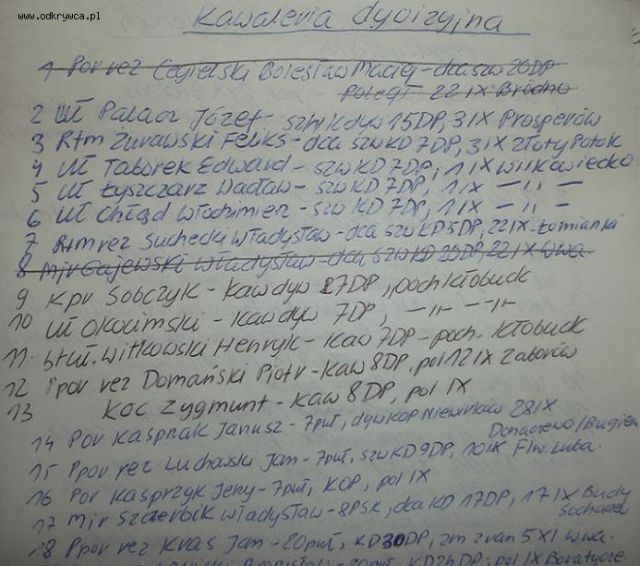 www.odkrywca.pl
Kawaleria dywizyjna
1 Por rez Cegielski Bolesław Maciej - dca szw 20DP
poległ 22 IX Bródno
2 Uł Palacz Józef - szw kdyw 15DP, 3 IX Prosperów
3 Rtm Żurawski Feliks - dca szw KD 7DP, 3 IX Złoty Potok
4 Uł Taborek Edward - szw KD 7DP, 1 IX Wilkowiecko
5 Uł Łyszczarz Wacław - szw KD 7DP, 1 IX -"-
6 Uł Chłąd Włodzimierz - szw KD 7DP, 1 IX -"-
7 Rtm rez Suchecki Władysław - dca szw KD 5DP, 22 IX Łomianki
8 Mjr Gajewski Władysław - dca szw KD 20DP, 22 IX W-wa
9 Kpr Sobczyk - kaw dyw 27DP, poch Kłobuck
10 Uł Okocimski - kaw dyw 7DP, -"- -"-
11. st uł. Witkowski Henryk - kaw 7DP - poch. Kłobuck
12 Ppor rez Domański Piotr - kaw 8DP, pol 12 IX Zaborów
13 Koc Zygmunt - kaw 8DP, pol IX
14 Por Kasprzak Janusz - 7puł, dyw KOP Niewirków 28 IX
Donaczewo/Bugiem
15 Ppor rez Luchowski Jan - 7puł, szw KD 9DP, 10 IX Flw. Luba.
16 Por Kasprzyk Jerzy - 7puł, KOP, pol IX
17 Mjr Szczerbik Władysław - 8PSK, dca KD 17DP, 17 IX Budy
18 Ppor rez Kras Jan - 20puł, KD 30DP, zm z ran 5 XI W-wa.
20puł, KD 24DP, pol IX Boratycze